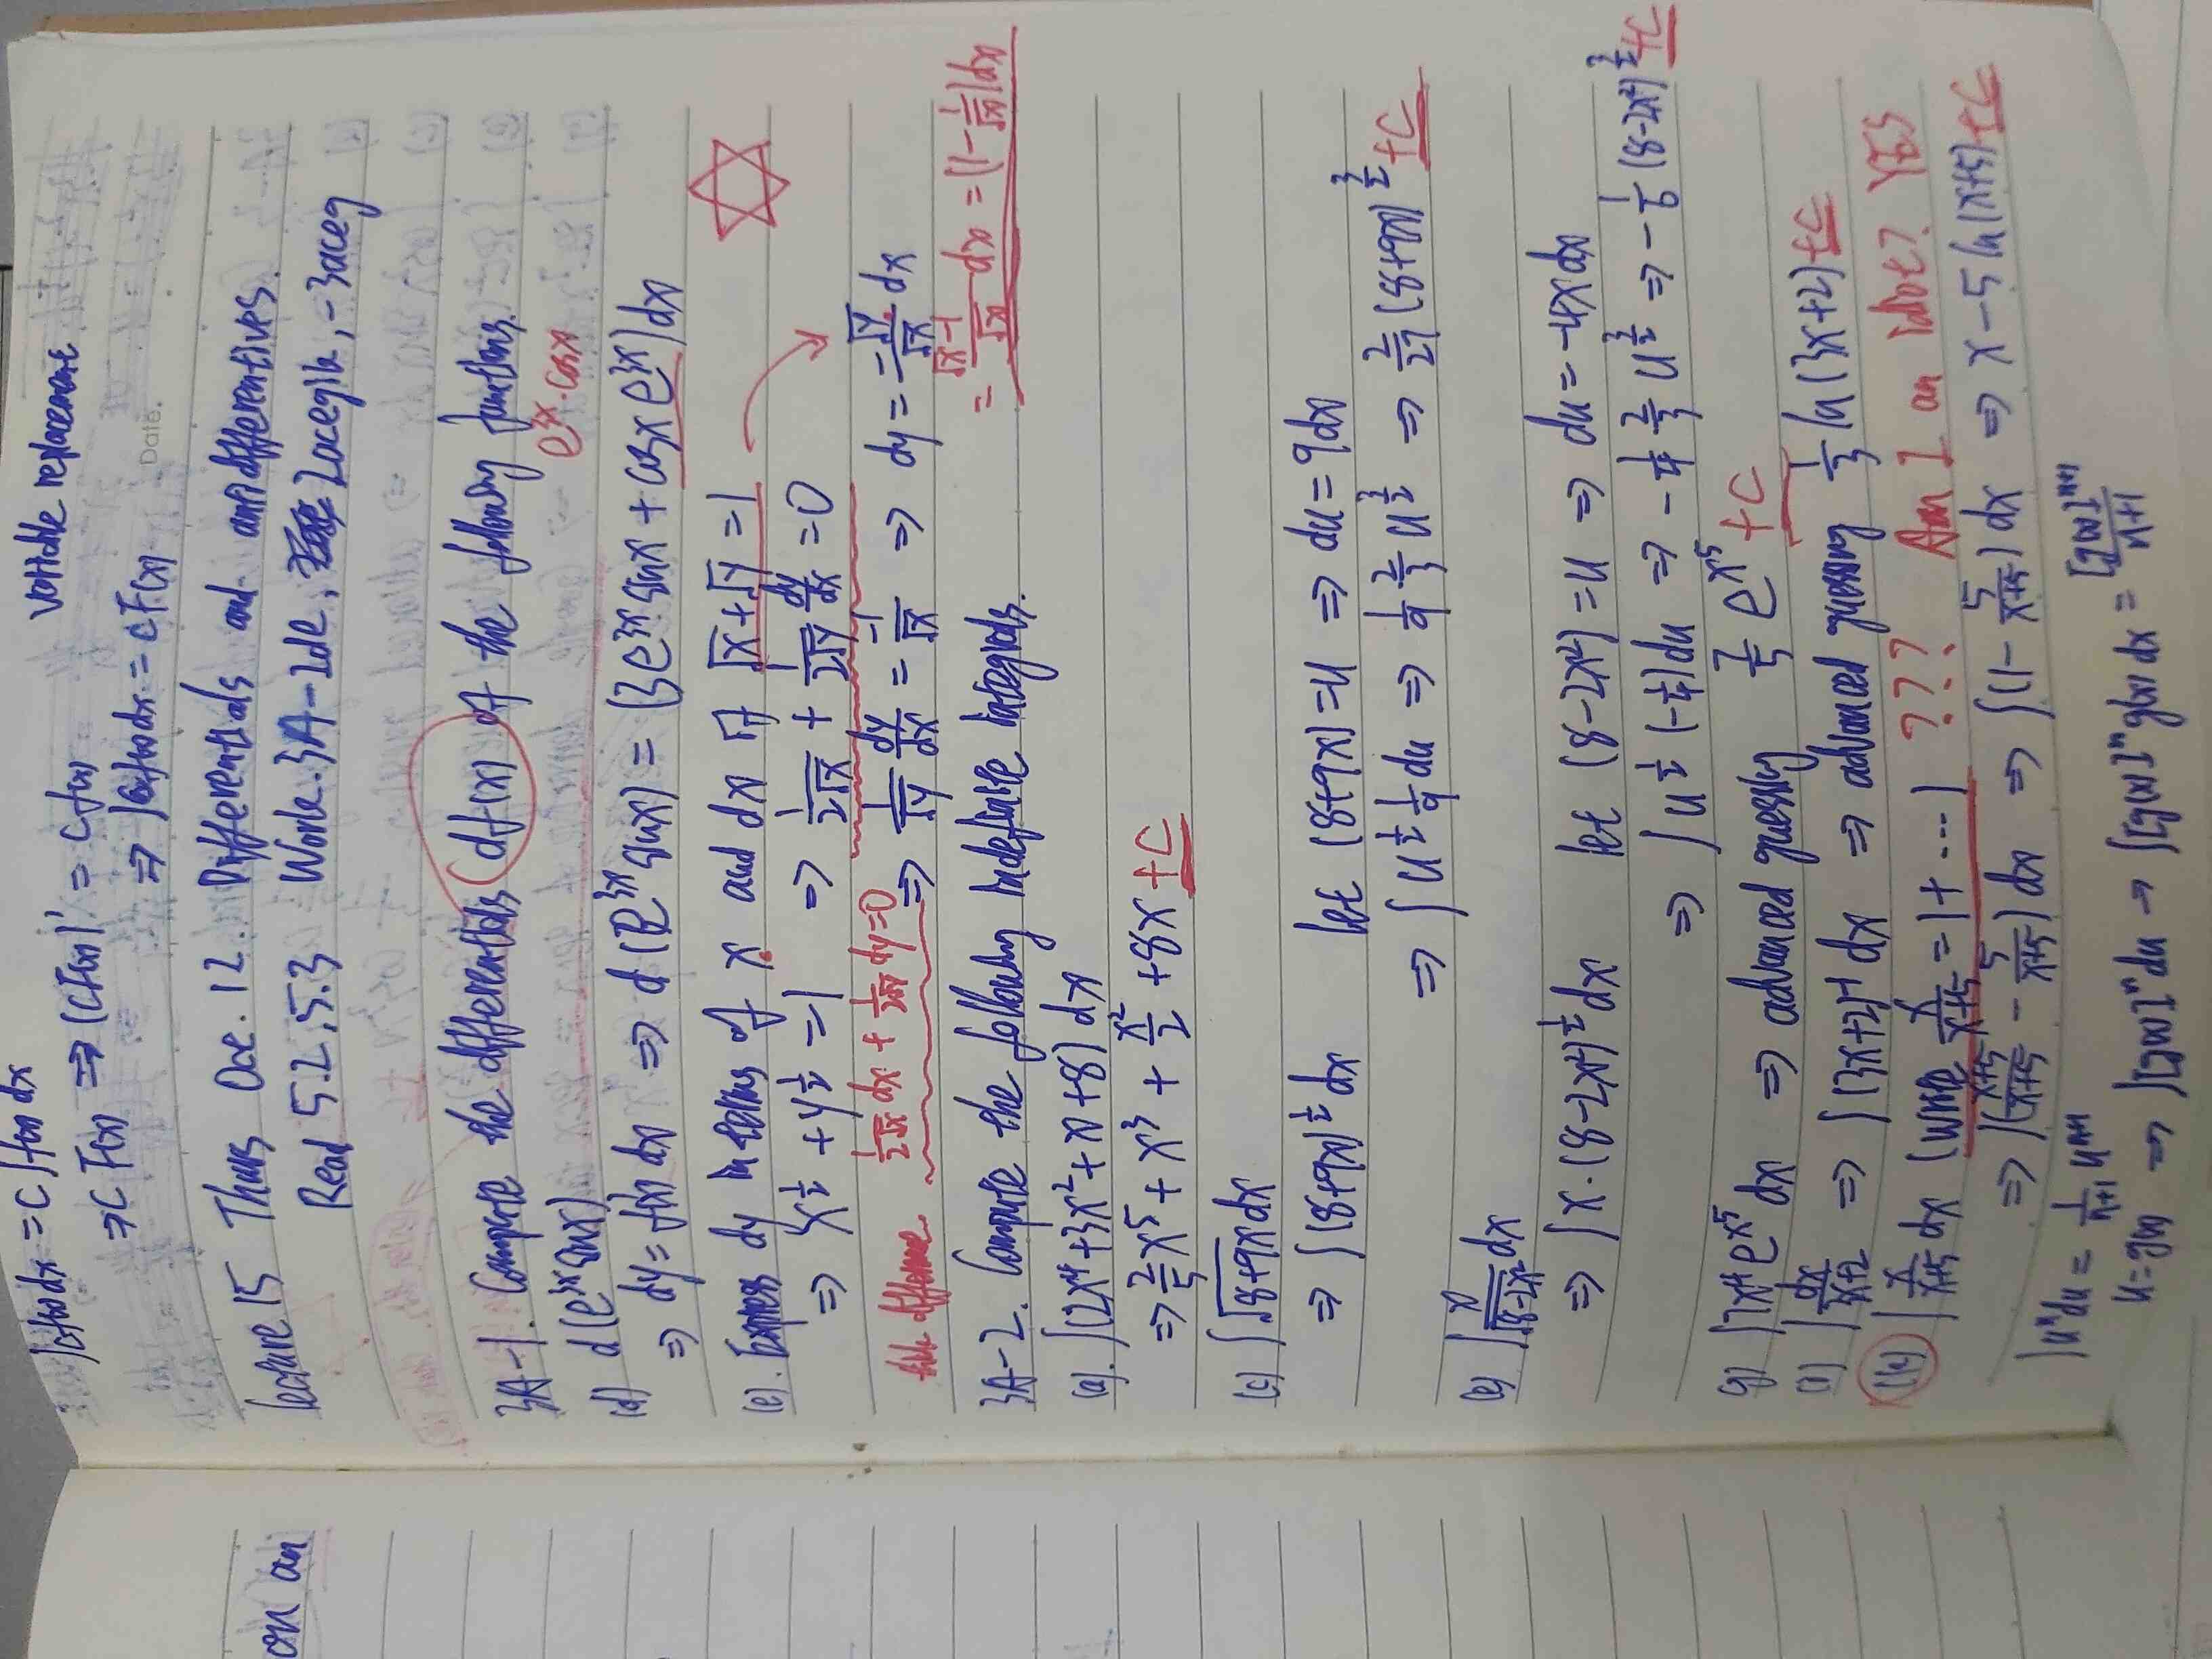 ∫cf(x)dx = c∫f(x)dx
⇒ c F(x) ⇒ (cF(x))' = cf(x)
⇒ ∫cf(x)dx = cF(x)
Date.
Lecture.15 Thurs Oct. 12. Differentials and antiderivatives.
Read 5.2, 5.3 Work. 3A-1de, 2acegik, -3aceg
3A-1. Compute the differentials (df(x)) of the following functions.
(d) d(e^{3x} sinx) e^{3x}·cosx
⇒ dy = f'(x) dx ⇒ d(e^{3x} sinx) = (3e^{3x} sinx + cosx e^{3x})dx
(e). Express dy in terms of x and dx if √x+√y = 1
⇒ x^{1/2} + y^{1/2} = 1 ⇒ 1/(2√x) + 1/(2√y) dy/dx = 0
1/(2√x) dx + 1/(2√y) dy = 0 ⇒ 1/√y dy/dx = -1/√x ⇒ dy = -√y/√x dx
= (√x-1)/√x dx = (1 - 1/√x)dx
3A-2. Compute the following indefinite integrals.
(a). ∫(2x^4+3x^2+x+8) dx
⇒ 2/5 x^5 + x^3 + x^2/2 + 8x +C
(c) ∫√(8+9x) dx let (8+9x) = u ⇒ du = 9dx
⇒ ∫(8+9x)^{1/2} dx ⇒ ∫u^{1/2} 1/9 du ⇒ 1/9 2/3 u^{3/2} ⇒ 2/27 (8+9x)^{3/2} +C
(e) ∫ x/√(8-2x²) dx
⇒ ∫x·(8-2x²)^{1/2} dx let (8-2x²) = u ⇒ du = -4x dx
⇒ ∫u^{1/2} (-1/4)du ⇒ -1/4 2/3 u^{3/2} ⇒ -1/6 (8-2x²)^{3/2} +C
g) ∫7x^4 e^{x^5} dx ⇒ advanced guessing 7/5 e^{x^5} +C
(i) ∫ dx/(3x+2) ⇒ ∫(3x+2)^{-1} dx ⇒ advanced guessing 1/3 ln(3x+2) +C
(k) ∫ x/(x+5) dx (write x/(x+5) = 1 + ...) ??? Am I an idot? YES
⇒ ∫((x+5)/(x+5) - 5/(x+5)) dx ⇒ ∫(1 - 5/(x+5)) dx ⇒ x - 5 ln(x+5) +C
∫u^n du = 1/(n+1) u^{n+1}
u = g(x) ⇒ ∫[g(x)]^n du → ∫[g(x)]^n g'(x) dx = [g(x)]^{n+1}/(n+1)
on an